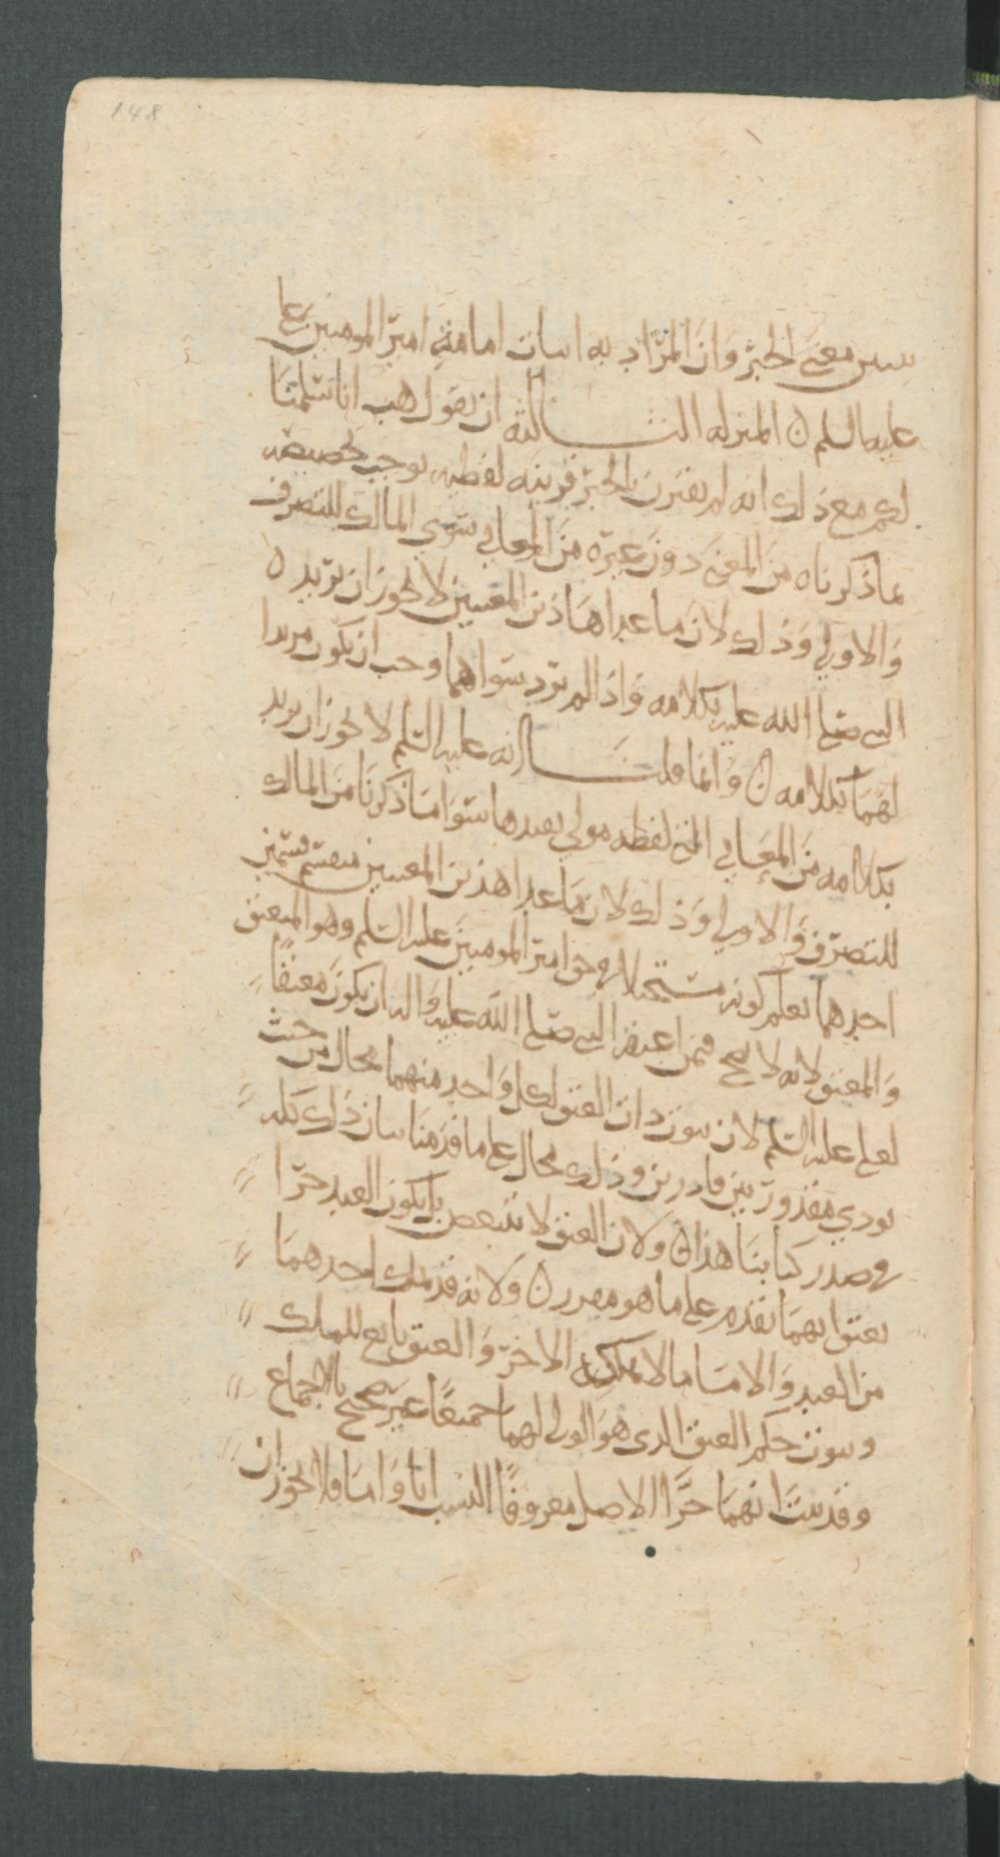 148
يتبين معنى الخبر وان المراد به اثبات امامة امير المومنين على
عليه السلم ن المنزله الثالثه ان نقول هب انا سلمنا
لكم مع ذلك انه لم يقترن بالخبر قرينه لفظيه توجب تخصيصه
بما ذكرناه من المعنى دون غيره من المعاني سوى المالك للتصرف
والاولى وذلك لان ما عدا هاذين المعنيين لا يجوز ان يريده
النبي صلى الله عليه بكلامه واذا لم يرد سواهما وجب ان يكون مريدا
لهما بكلامه ن وانما قلنا انه عليه السلم لا يجوز ان يريد
بكلامه من المعاني التي لفظه مولى يفيدها سوا ما ذكرنا من المالك
للتصرف والاولى وذلك لان ما عدا هذين المعنيين منقسم قسمين
احدهما يعلم كونه مستحيلا في حق امير المومنين عليه السلم وهو المعتق
والمعتق لانه لا يصح فيمن اعتقه النبي صلى الله عليه واله ان يكون معتقا
لعلي عليه السلم لان ثبوت ذات العتق لكل واحد منهما محال من حيث
يودي مقدور بين قادرين وذلك محال على ما قدمنا بيان ذلك كله
في صدر كتابنا هذا ن ولان العتق لا يتبعض بان يكون العبد حرا
بعتق ايهما تقدم على ما هو مقرر ن ولانه قد يملك احدهما
من العبيد والاما ما لا يملكه الاخر والعتق تابع للملك
وثبوت حكم العتق الذي هو الولى لهما جميعا غير صحيح بالاجماع
وقد ثبت انهما حرا الاصل معروفا النسب ابا واما فلا يجوز ان